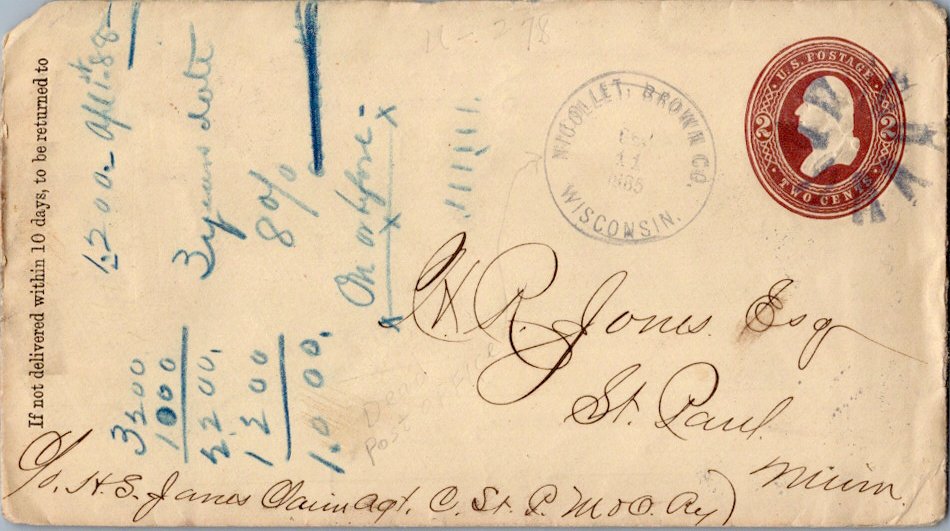 If not delivered within 10 days, to be returned to
1200 - Apl 1st - 88 -
3 years date
8 0/0
On or before -
x x x
3200
1000
2200.
1200
1.000.
NICOLLET, BROWN CO.
11
1885
WISCONSIN.
U.S. POSTAGE
2 2
TWO CENTS
R. Jones. Esq
St. Paul.
Minn.
C/o. H. S. Janes Claim Agt. C. St. P. M & O. Ry)
Post